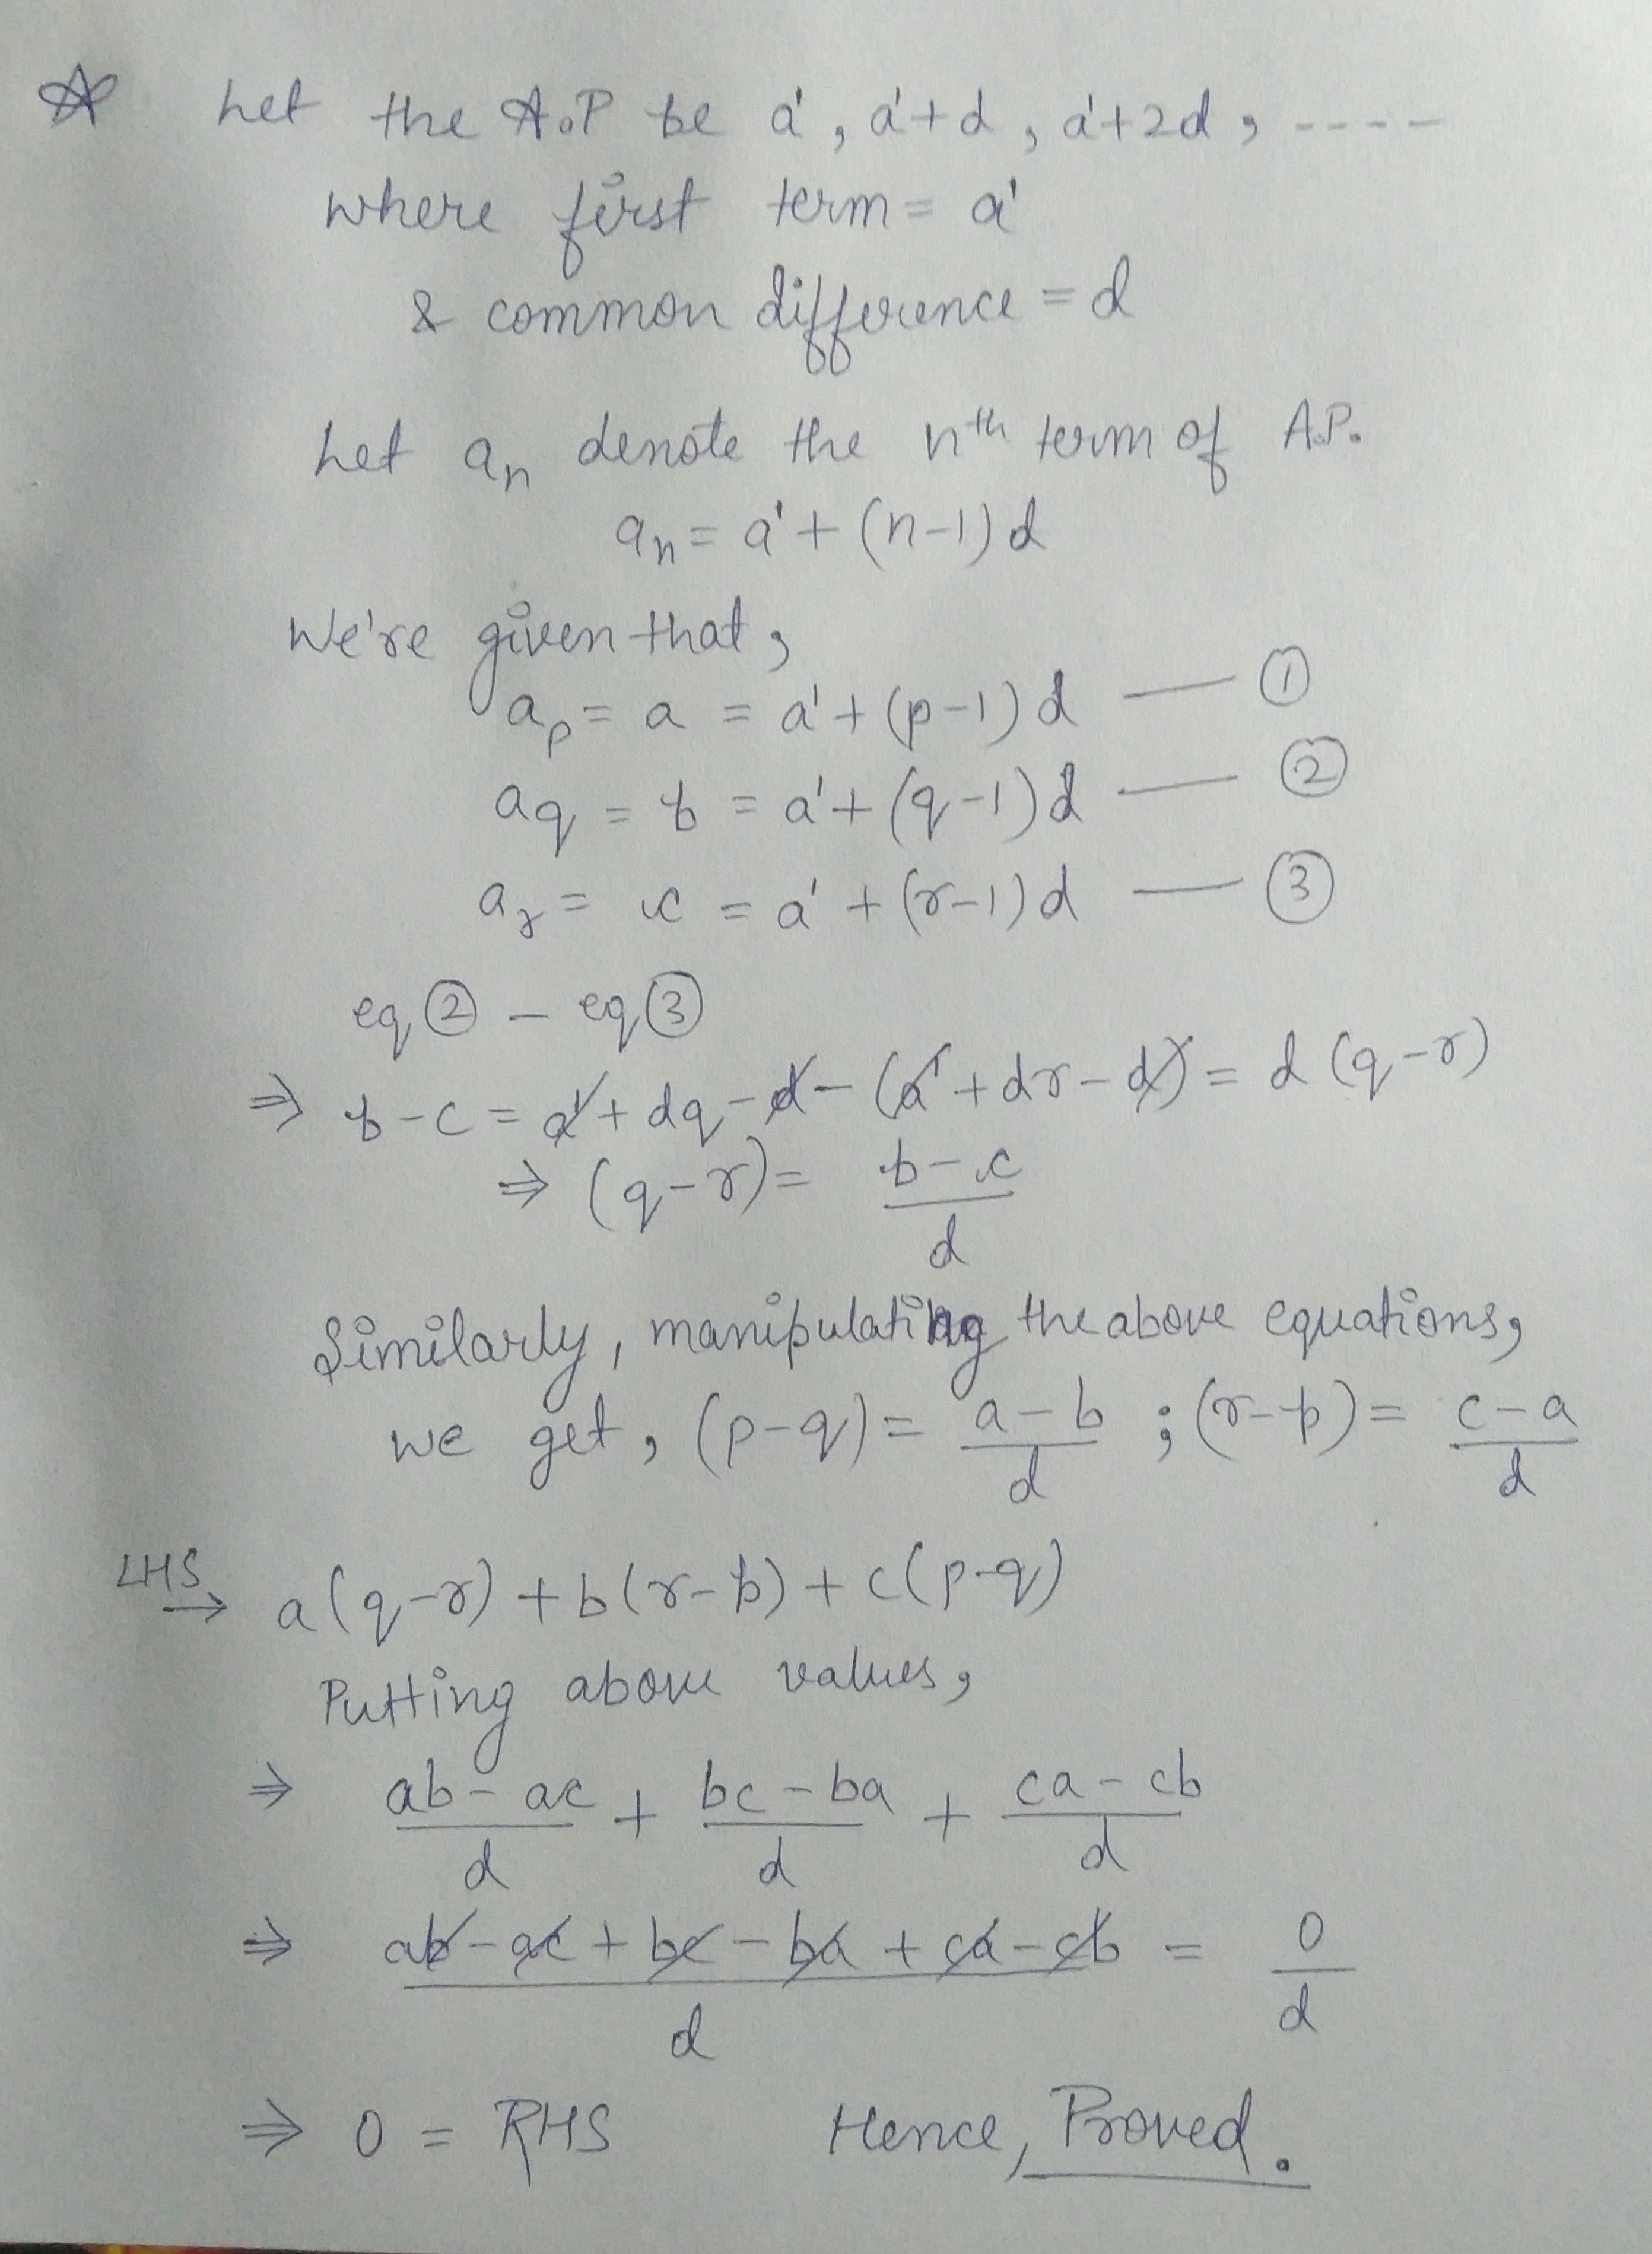 Let the A.P be a', a'+d, a'+2d, ----
where first term = a'
& common difference = d
Let aₙ denote the nᵗʰ term of A.P.
aₙ = a' + (n-1) d
We're given that,
a_p = a = a' + (p-1) d — ①
a_q = b = a' + (q-1) d — ②
a_r = c = a' + (r-1) d — ③
eq ② - eq ③
⇒ b-c = a' + dq - d - (a' + dr - d) = d (q-r)
⇒ (q-r) = (b-c)/d
Similarly, manipulating the above equations,
we get, (p-q) = (a-b)/d ; (r-p) = (c-a)/d
LHS → a(q-r) + b(r-p) + c(p-q)
Putting above values,
⇒ (ab-ac)/d + (bc-ba)/d + (ca-cb)/d
⇒ (ab-ac+bc-ba+ca-cb)/d = 0/d
⇒ 0 = RHS Hence, Proved.